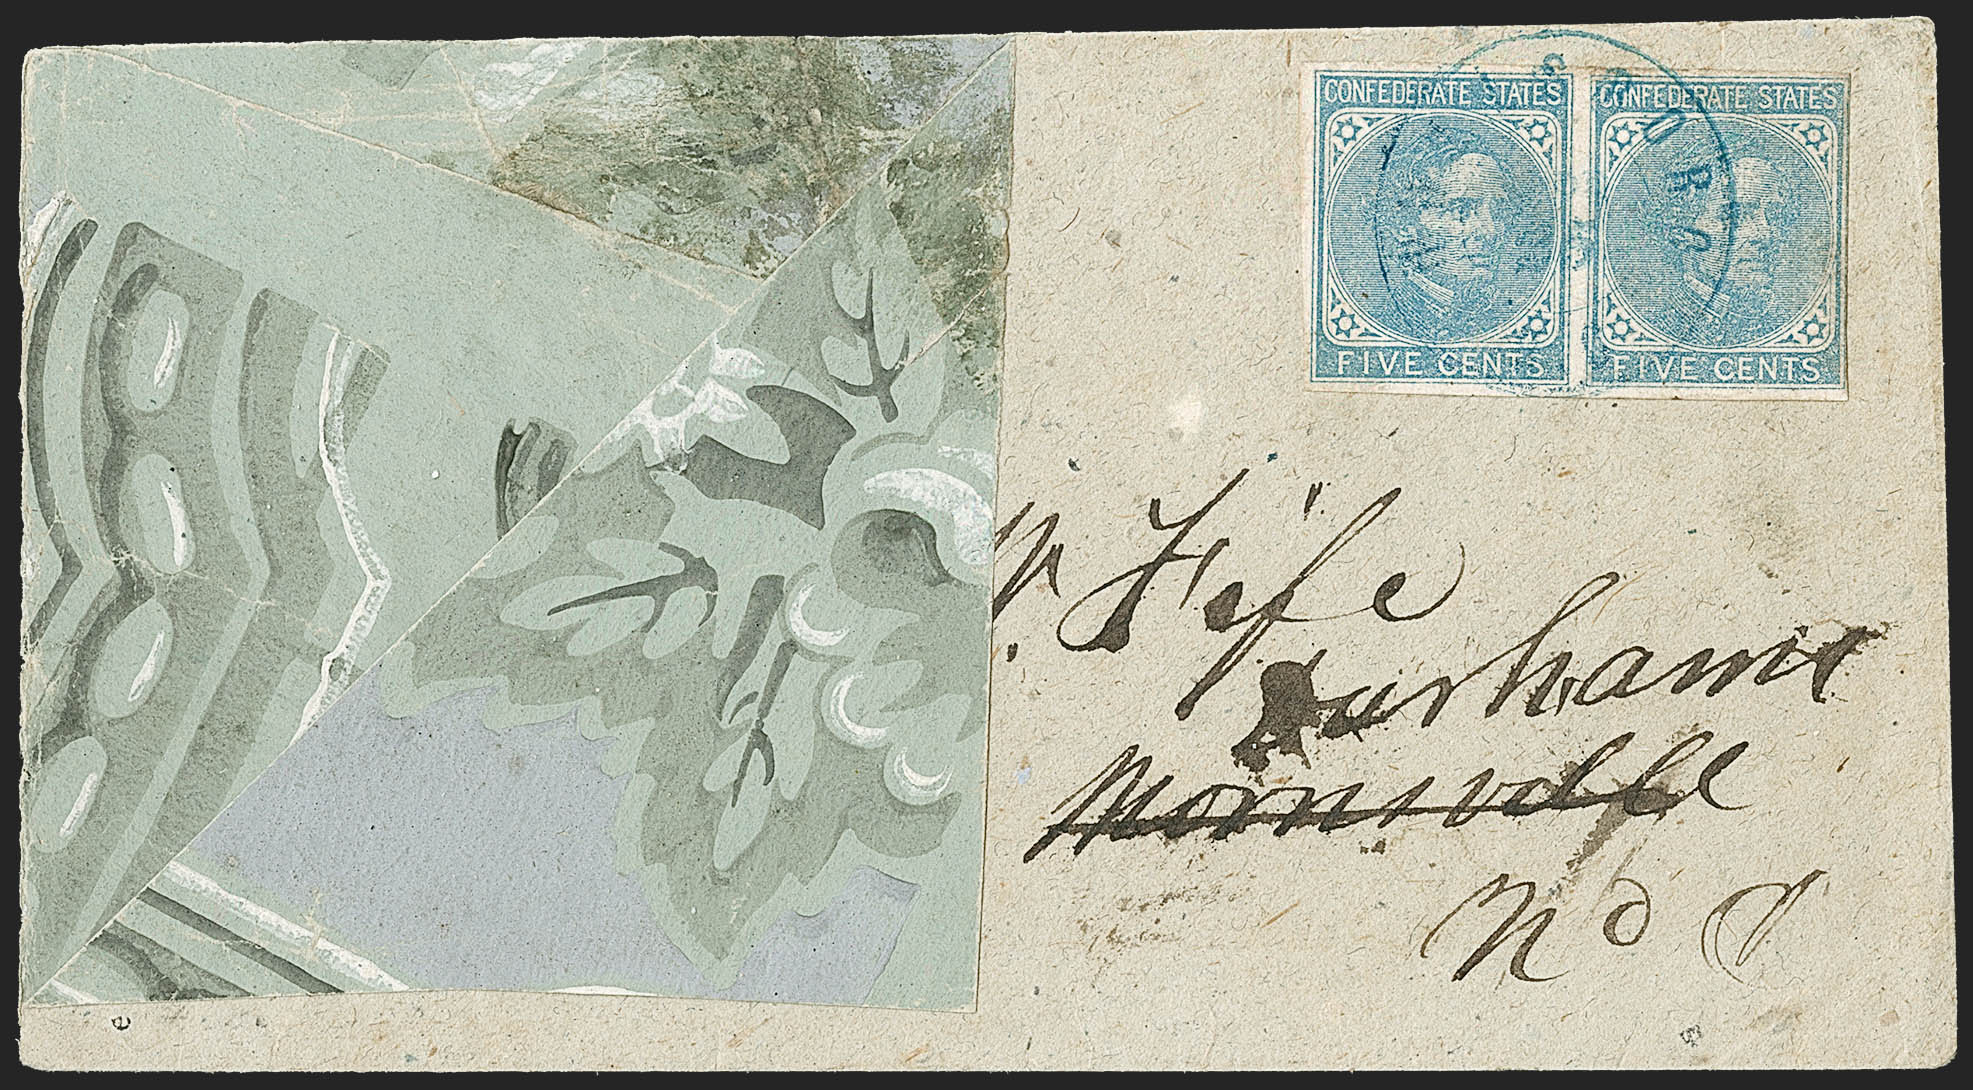 CONFEDERATE STATES
FIVE CENTS
CONFEDERATE STATES
FIVE CENTS
Fife
Durhams
Morrisville
N C